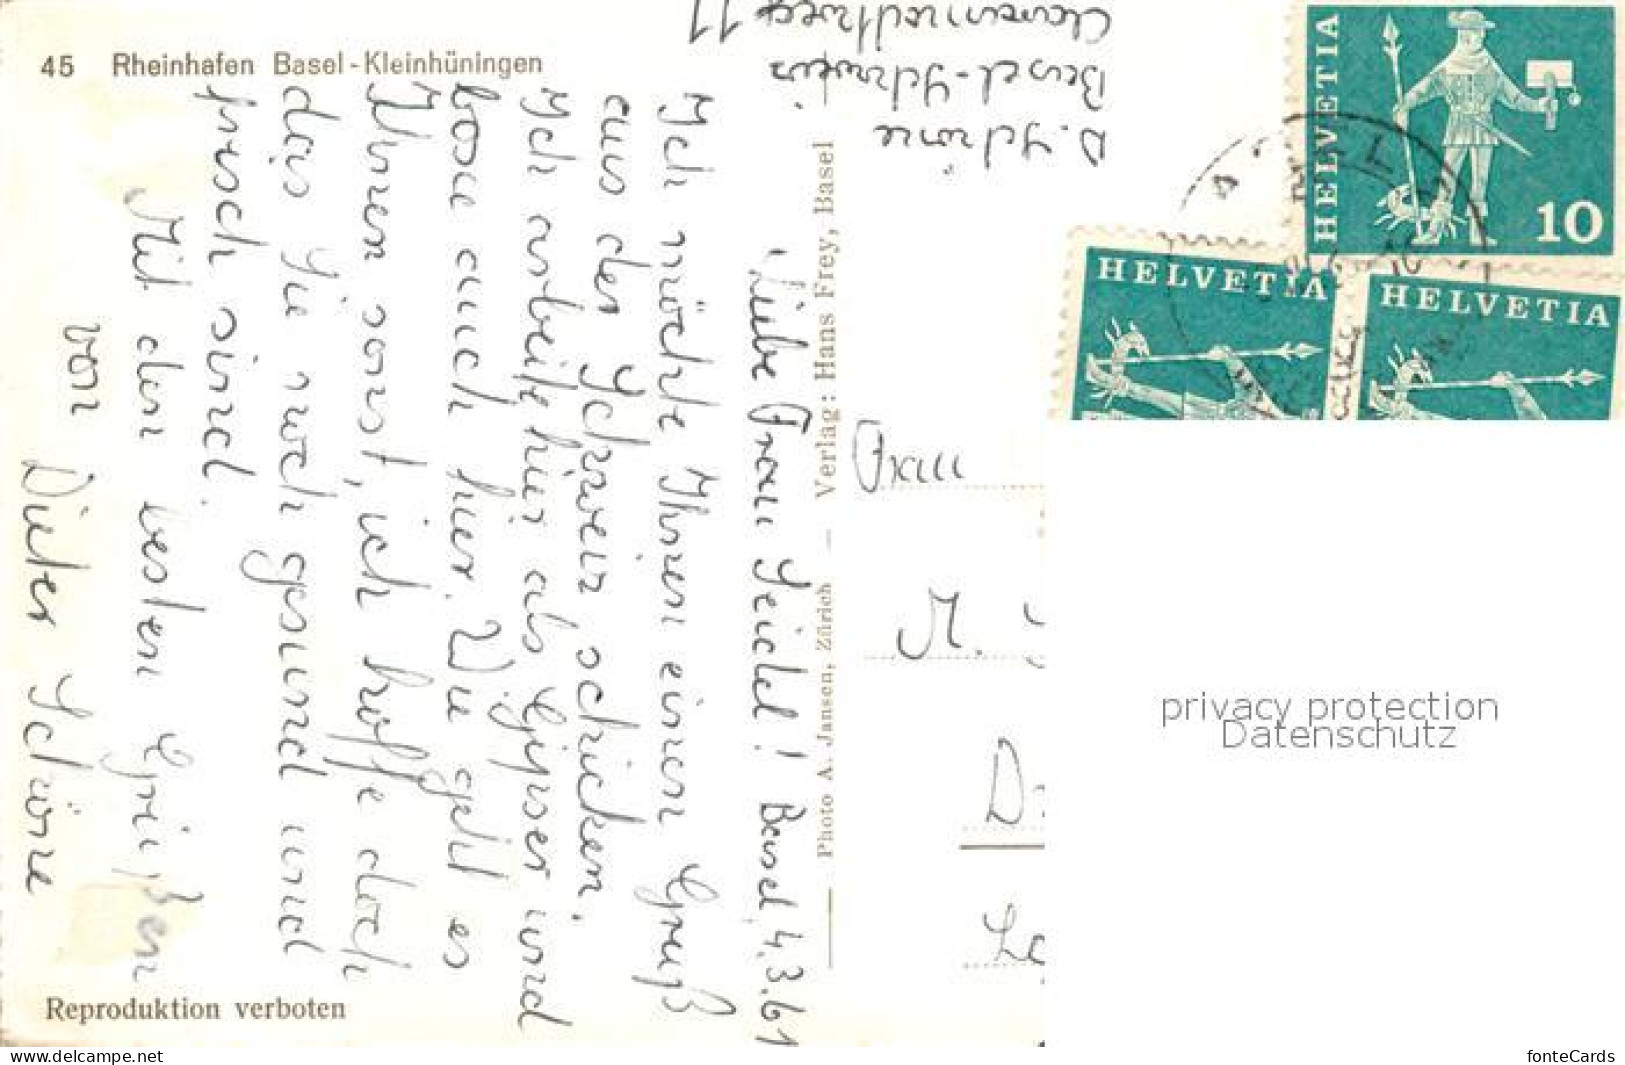 45 Rheinhafen Basel-Kleinhüningen
Liebe Frau Seidel! Basel, 4.3.61
Ich möchte Ihnen einen Gruß
aus der Schweiz schicken.
Ich arbeite hier als Gipser und
boxe auch hier. Wie geht es
Ihnen sonst, ich hoffe doch
das Sie noch gesund und
frisch sind.
Mit den besten Grüßen
von
Dieter Schöne
Reproduktion verboten
D. Schöne
Basel-Schweiz
11
Photo A. Jansen, Zürich — Verlag: Hans Frey, Basel
HELVETIA
10
HELVETIA
HELVETIA
Frau
M.
privacy protection
Datenschutz
www.delcampe.net
fonteCards